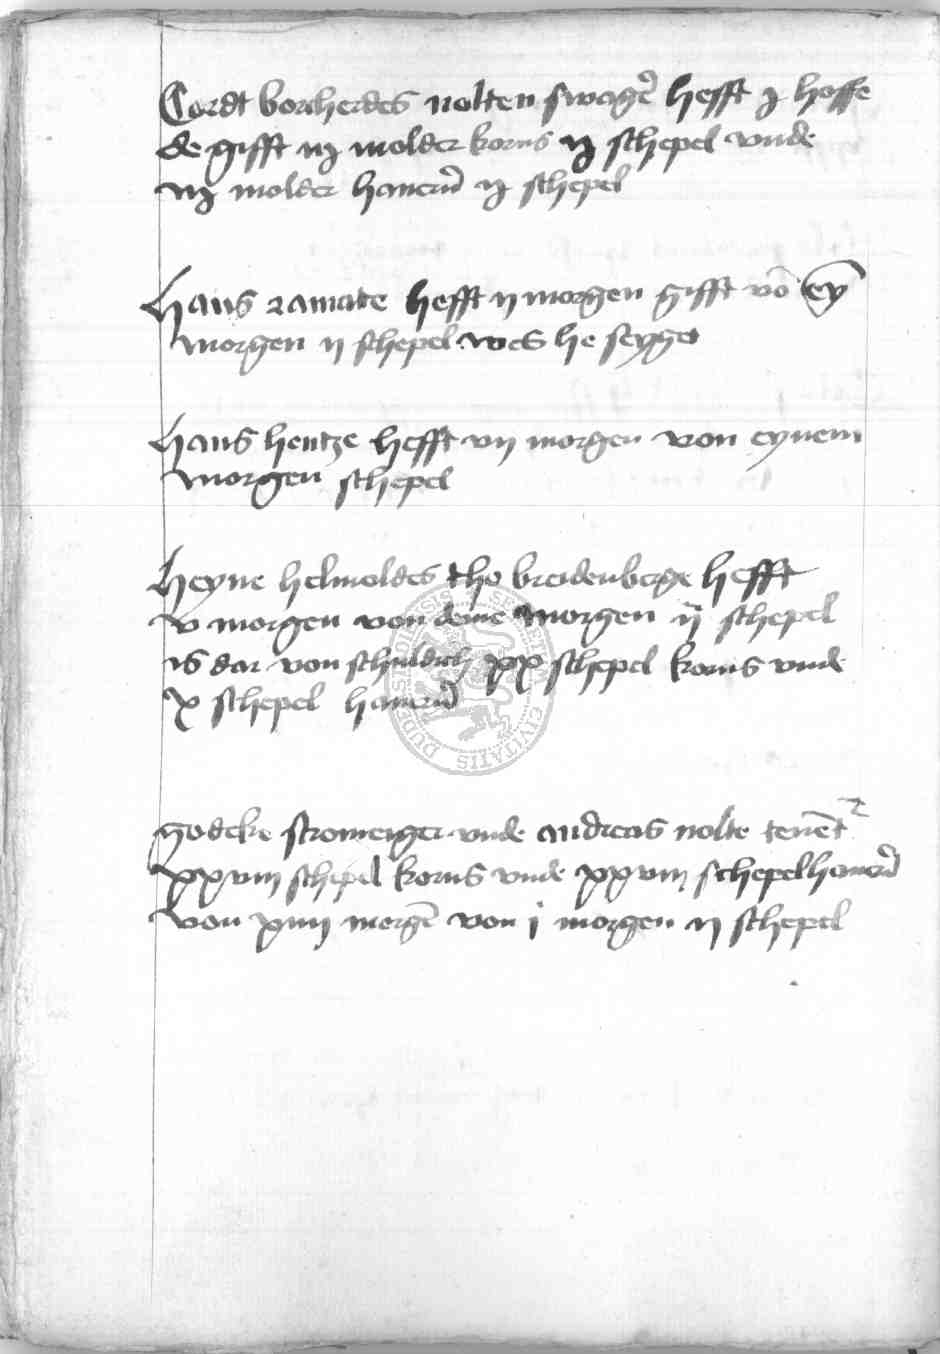 Cordt borcherdes nolten swager hefft j hoffe
de gifft iij molder korns ij schepel vnde
iij molder hauern ij schepel
Hans hefft ij morgen gifft vō ey
morgen ij schepel wes he seyget
Hans hentze hefft vij morgen von eynem
morgen schepel
Heyne helmoldes tho breidenberge hefft
v morgen von deme morgen ij schepel
is dar von schuldich xx scheppel korns vnde
x schepel hauern
godeke stromeiger vnde andreas nolte tenēt
xxviij schepel korns vnde xxviij schepel hauern
von xiiij morgē von j morgen ij schepel
SECRETUM CIVITATIS